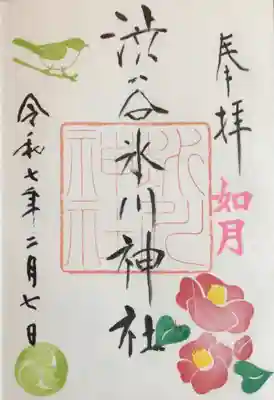 奉拝
如月
渋谷氷川神社
令和七年二月七日